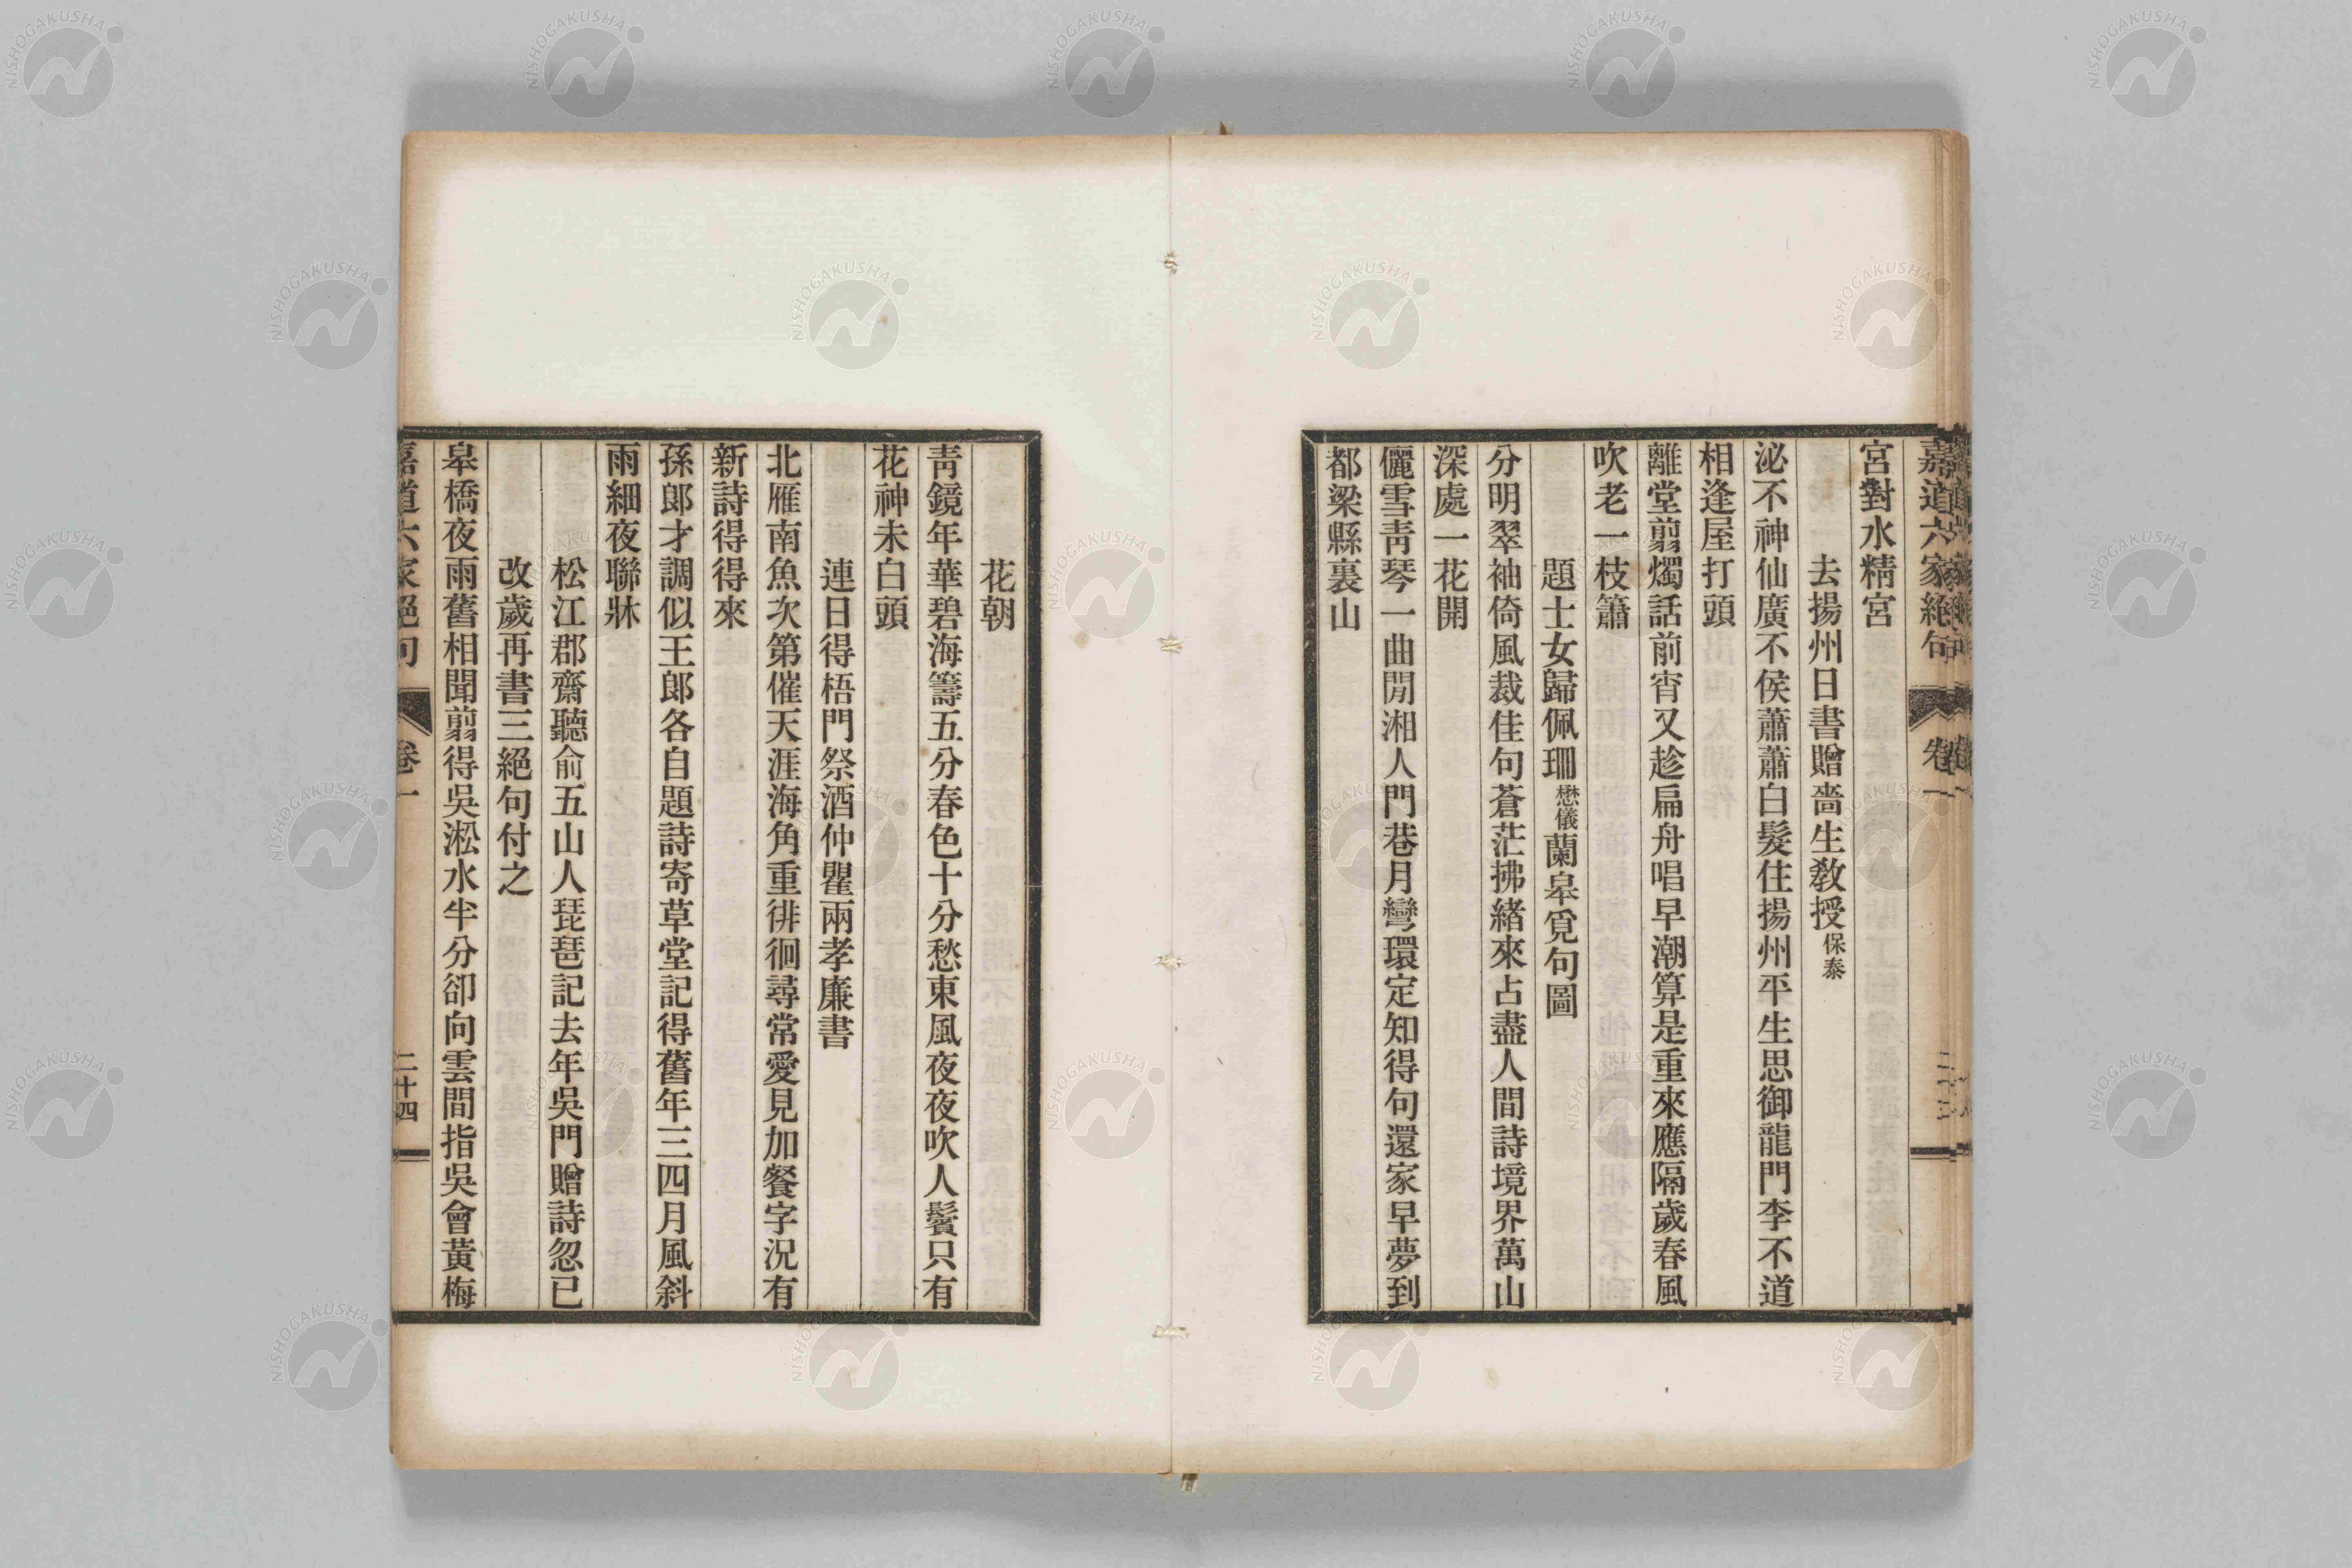 嘉道六家絕句
卷一
宮對水精宮
去揚州日書贈嗇生敎授保泰
泌不神仙廣不侯蕭蕭白髮住揚州平生思御龍門李不道
相逢屋打頭
離堂翦燭話前宵又趁扁舟唱早潮算是重來應隔歲春風
吹老一枝簫
題士女歸佩珊懋儀蘭皋覓句圖
分明翠袖倚風裁佳句蒼茫拂緒來占盡人間詩境界萬山
深處一花開
儷雪靑琴一曲閒湘人門巷月彎環定知得句還家早夢到
都梁縣裏山
花朝
靑鏡年華碧海籌五分春色十分愁東風夜夜吹人鬢只有
花神未白頭
連日得梧門祭酒仲瞿兩孝廉書
北雁南魚次第催天涯海角重徘徊尋常愛見加餐字況有
新詩得得來
孫郎才調似王郎各自題詩寄草堂記得舊年三四月風斜
雨細夜聯牀
松江郡齋聽俞五山人琵琶記去年吳門贈詩忽已
改歲再書三絕句付之
皋橋夜雨舊相聞翦得吳淞水半分卻向雲間指吳會黃梅
嘉道六家絕句
卷一
二十四
NISHOGAKUSHA